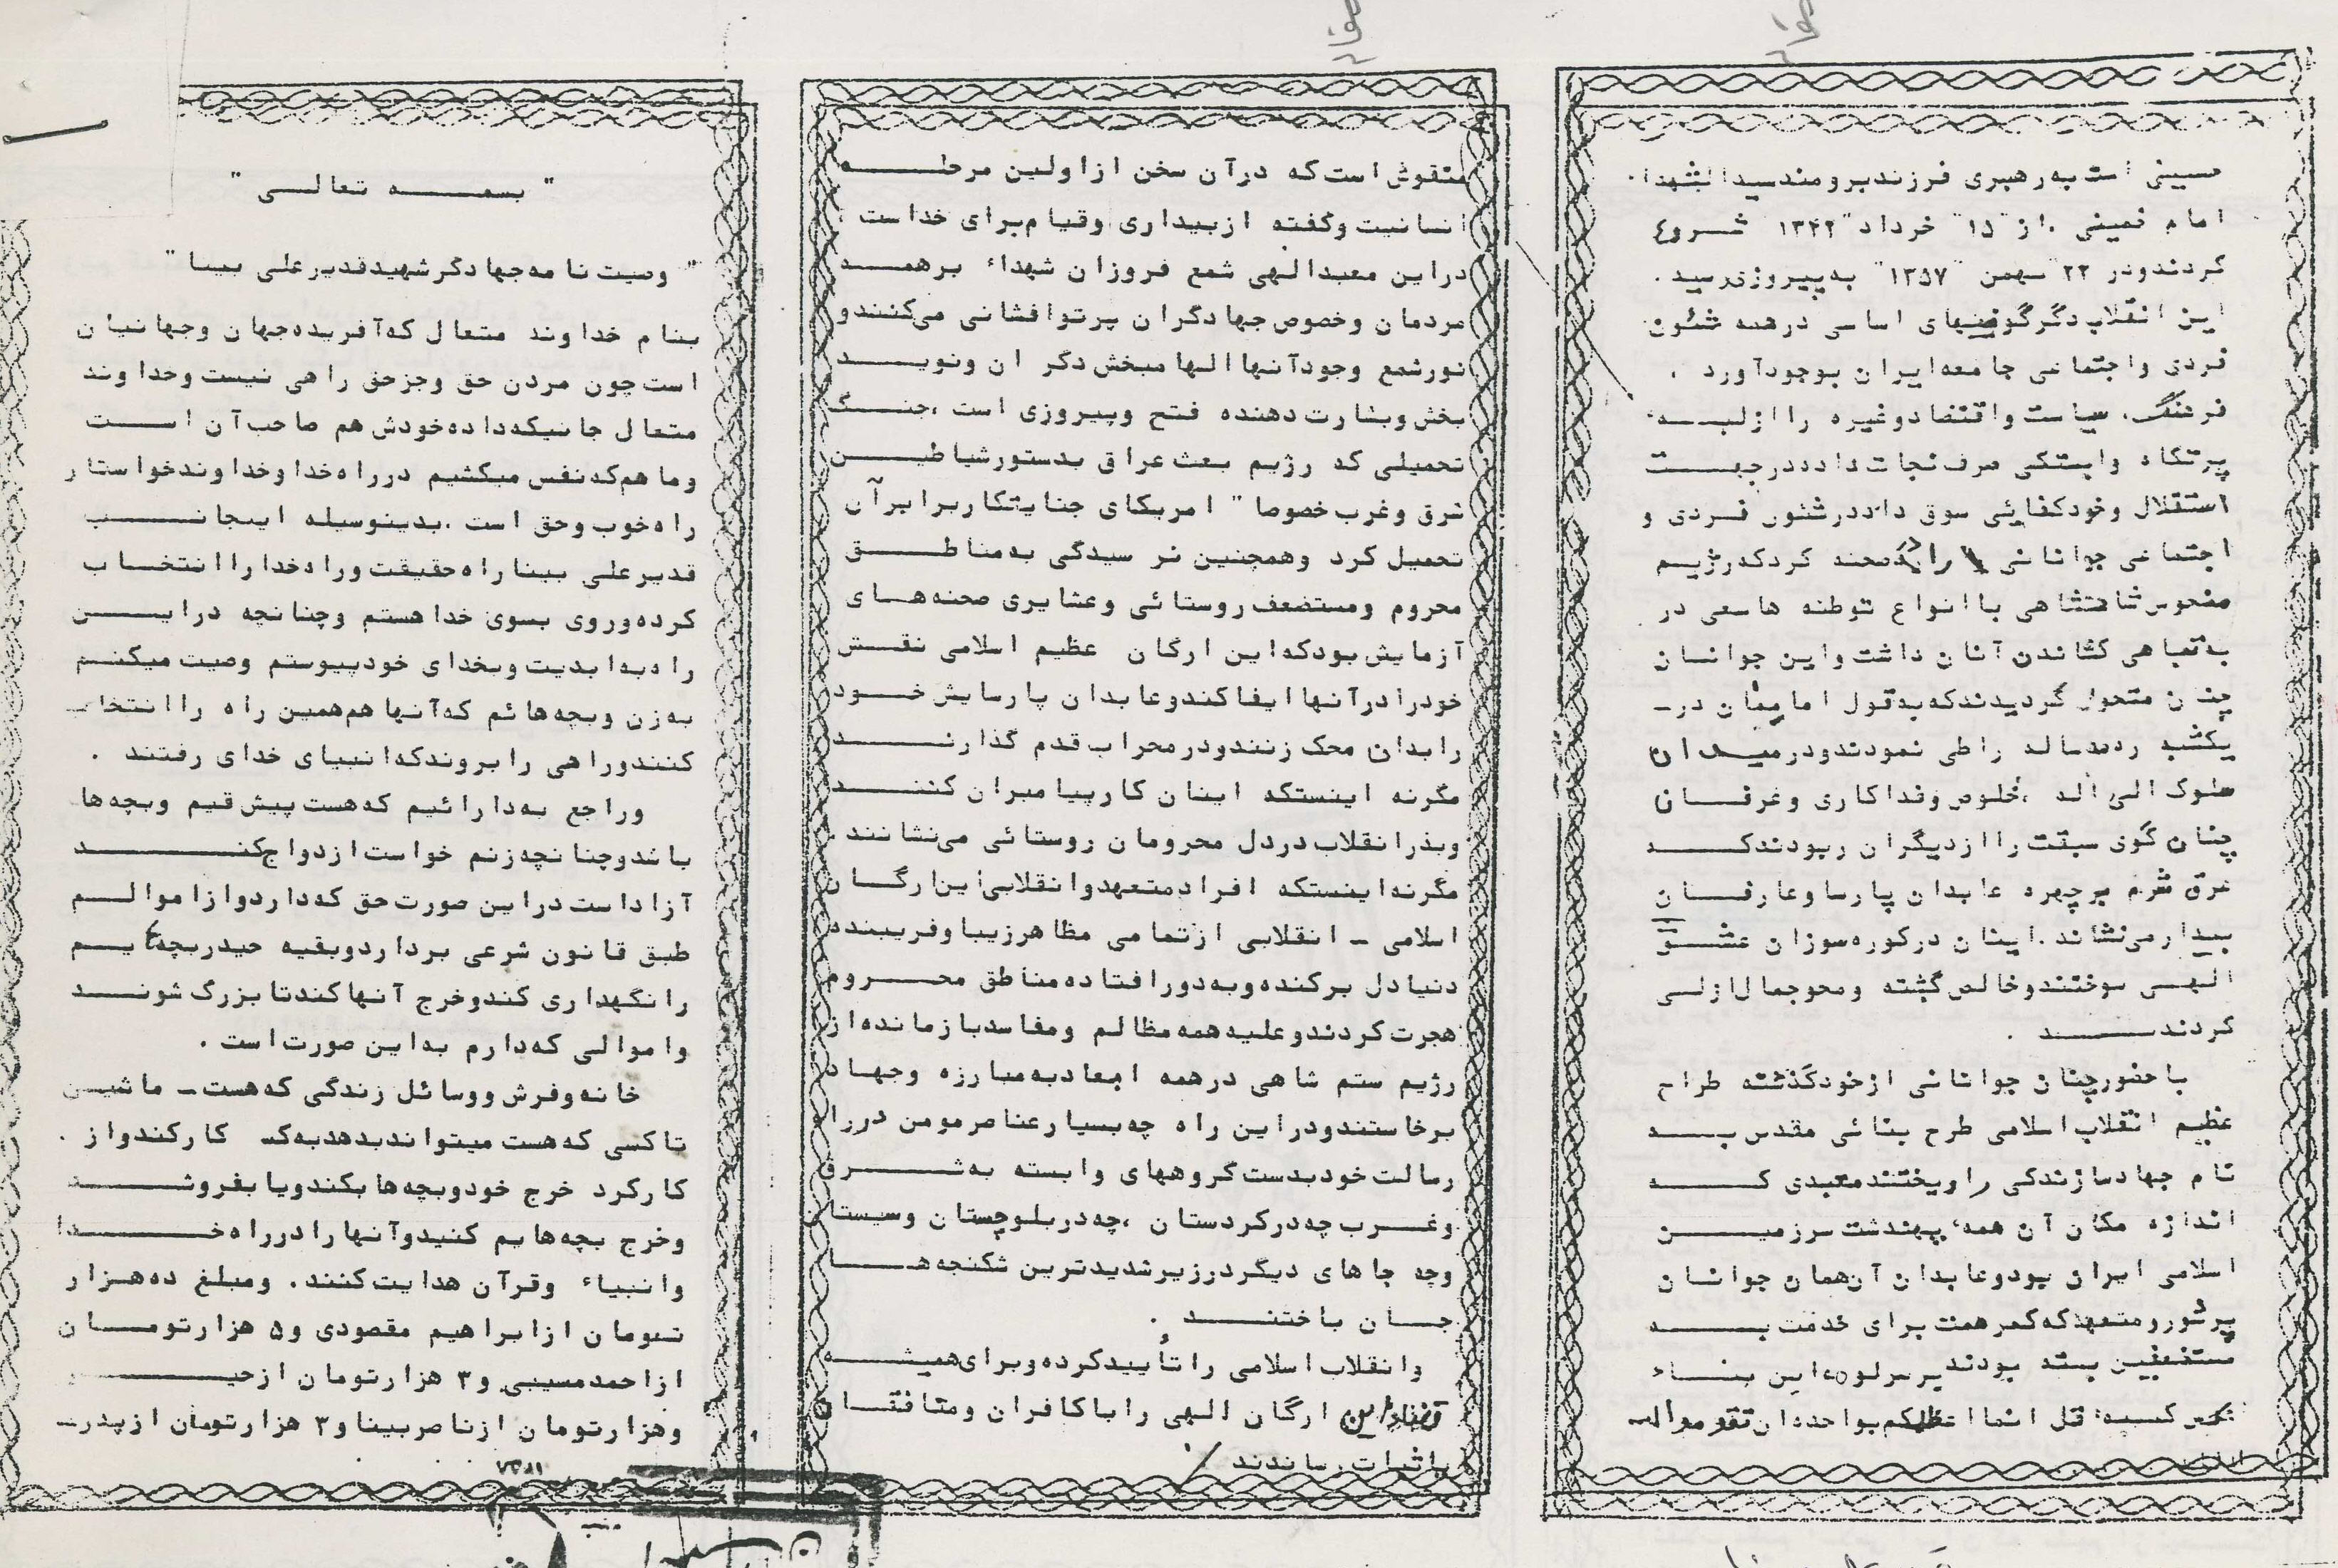 حسینی است به رهبری فرزند برومند سیدالشهداء
امام خمینی .از "۱۵ خرداد "۱۳۴۲ شروع
کردند و در ۲۲ بهمن "۱۳۵۷" به پیروزی رسید .
این انقلاب دگرگونیهای اساسی در همه شئون
فردی و اجتماعی جامعه ایران بوجود آورد .
فرهنگ، سیاست و اقتصاد و غیره را از لبه
پرتگاه وابستگی صرف نجات داد در جهت
استقلال و خودکفایی سوق داد در شئون فردی و
اجتماعی جوانانی را صحنه کرد که رژیم
منحوس شاهنشاهی با انواع توطئه ها سعی در
به تباهی کشاندن آنان داشت و این جوانان
چنان متحول گردیدند که به قول اماممان در ـ
یکشبه ره صد ساله را طی نمودند و در میدان
سلوک الی اله ،خلوص و فداکاری و عرفان
چنان گوی سبقت را از دیگران ربودند که
عرق شرم بر چهره عابدان پارسا و عارفان
بیدار می‌نشاند .اینان در کوره سوزان عشق
الهی سوختند و خالص گشته و محو جمال ازلی
کردند .
با حضور چنان جوانانی از خودگذشته طراح
عظیم انقلاب اسلامی طرح بنائی مقدس به
نام جهاد سازندگی را ریختند معبدی که
اندازه مکان آن همه پهندشت سرزمین
اسلامی ایران بود و عابدان آن همان جوانان
پرشور و متعهد که کمر همت برای خدمت به
مستضعفین بسته بودند بر سر لوحه این بناء
قل انما اعظکم بواحده ان تقوموا لله
منقوش است که در آن سخن از اولین مرحله
انسانیت و گفته از بیداری و قیام برای خداست
در این معبد الهی شمع فروزان شهداء بر همه
مردمان و خصوص جهادگران پرتوافشانی می‌کنند و
نور شمع وجود آنها الهام‌بخش دگر ان و نوید
بخش و بشارت دهنده فتح و پیروزی است ،جنگ
تحمیلی که رژیم بعث عراق بدستور شیاطین
شرق و غرب خصوصا " امریکای جنایتکار برابر آن
تحمیل کرد و همچنین نر سیدگی به مناطق
محروم و مستضعف روستائی و عشایری صحنه‌های
آزمایش بود که این ارگان عظیم اسلامی نقش
خود را در آنها ایفا کند و عابدان پارسایش خود
را بدان محک زنند و در محراب قدم گذارند
مگر نه اینستکه اینان کار پیامبران کنند
و بذر انقلاب در دل محرومان روستائی می‌نشانند .
مگر نه اینستکه افراد متعهد و انقلابی این ارگان
اسلامی ـ انقلابی از تمامی مظاهر زیبا و فریبنده
دنیا دل بر کنده و به دور افتاده مناطق محروم
هجرت کردند و علیه همه مظالم و مفاسد بازمانده از
رژیم ستم شاهی در همه ابعاد به مبارزه و جهاد
برخاستند و در این راه چه بسیار عناصر مومن در راه
رسالت خود بدست گروههای وابسته به شرق
و غرب چه در کردستان ،چه در بلوچستان و سیستان
و چه جاهای دیگر در زیر شدیدترین شکنجه‌ها
جان باختند .
و انقلاب اسلامی را تأیید کرده و برای همیشه
تضاد این ارگان الهی را با کافران و منافقان
باثبات رساندند
" بسمه تعالی "
" وصیت نامه جهادگر شهید قدیرعلی بینا "
بنام خداوند متعال که آفریده جهان و جهانیان
است چون مردن حق و جز حق راهی نیست و خداوند
متعال جانیکه داده خودش هم صاحب آن است
و ما هم که نفس میکشیم در راه خدا و خداوند خواستار
راه خوب و حق است .بدینوسیله اینجانب
قدیرعلی بینا راه حقیقت و راه خدا را انتخاب
کرده و روی بسوی خدا هستم و چنانچه در این
راه به ابدیت و بخدای خود پیوستم وصیت میکنم
به زن و بچه‌هائم که آنها هم همین راه را انتخاب
کنند و راهی را بروند که انبیای خدای رفتند .
و راجع به دارائیم که هست پیش قیم و بچه‌ها
باشد و چنانچه زنم خواست ازدواج کند
آزاد است در این صورت حق که دارد و از اموالم
طبق قانون شرعی بردارد و بقیه حیدر بچه‌هایم
را نگهداری کند و خرج آنها کند تا بزرگ شوند
و اموالی که دارم به این صورت است .
خانه و فرش و وسائل زندگی که هست ـ ماشین
تاکسی که هست میتواند بدهد به کس کار کند و از .
کارکرد خرج خود و بچه‌ها بکند و یا بفروشد
و خرج بچه‌هایم کنید و آنها را در راه خدا
و انبیاء و قرآن هدایت کنند. و مبلغ ده هزار
تومان از ابراهیم مقصودی و ۵ هزار تومان
از احمد مسیبی و ۳ هزار تومان از
و هزار تومان از ناصر بینا و ۳ هزار تومان از پدر